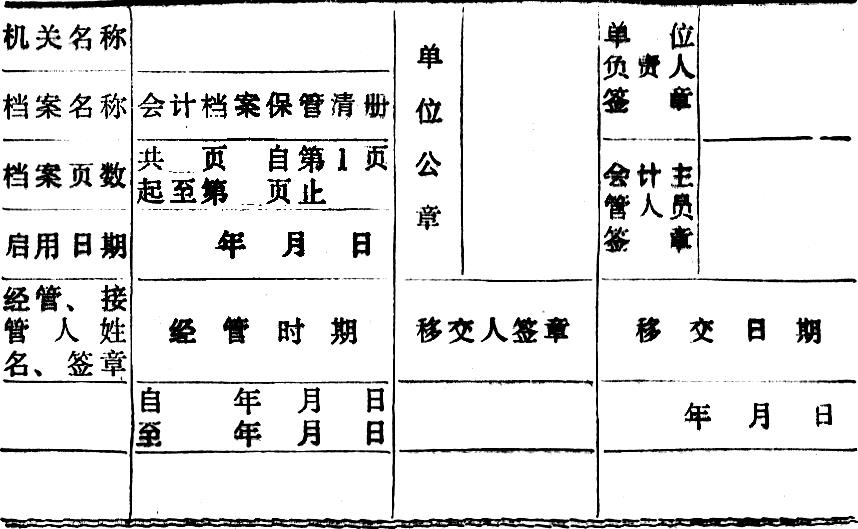 机关名称
档案名称 会计档案保管清册
档案页数 共 页 自第1页
起至第 页止
启用日期 年 月 日
单位公章
单位
负责人
签章
会计主
管人员
签章
经管、接
管人姓
名、签章
经管时期 移交人签章 移交日期
自 年 月 日
至 年 月 日
年 月 日